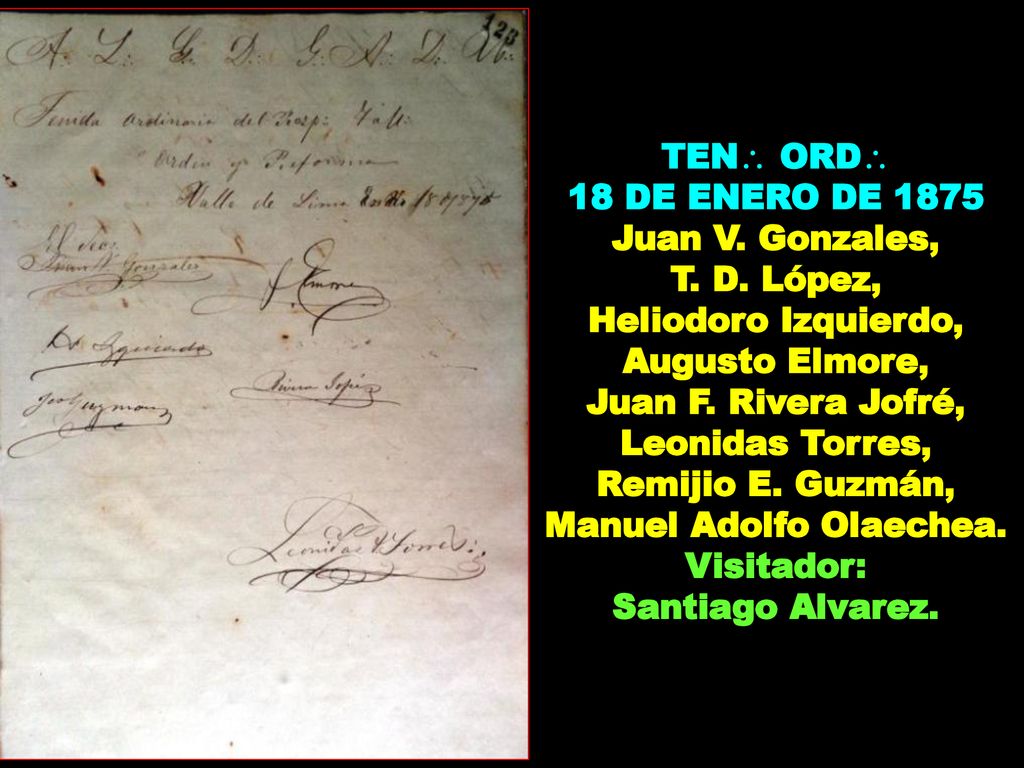 123
A∴ L∴ G∴ D∴ G∴ A∴ D∴ U∴
Tenida ordinaria del Resp∴ Tall∴
Orden y Reforma
Valle de Lima Enero 18/1875
El Sec∴
Juan V. Gonzales
Elmore
H. Izquierdo
Rivera
Guzman
Leonidas Torres
TEN∴ ORD∴
18 DE ENERO DE 1875
Juan V. Gonzales,
T. D. López,
Heliodoro Izquierdo,
Augusto Elmore,
Juan F. Rivera Jofré,
Leonidas Torres,
Remijio E. Guzmán,
Manuel Adolfo Olaechea.
Visitador:
Santiago Alvarez.